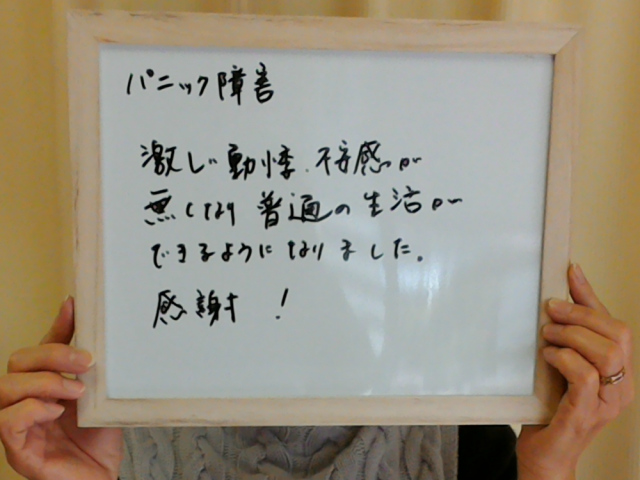 パニック障害
激しい動悸、不安感が
無くなり普通の生活が
できるようになりました。
感謝！